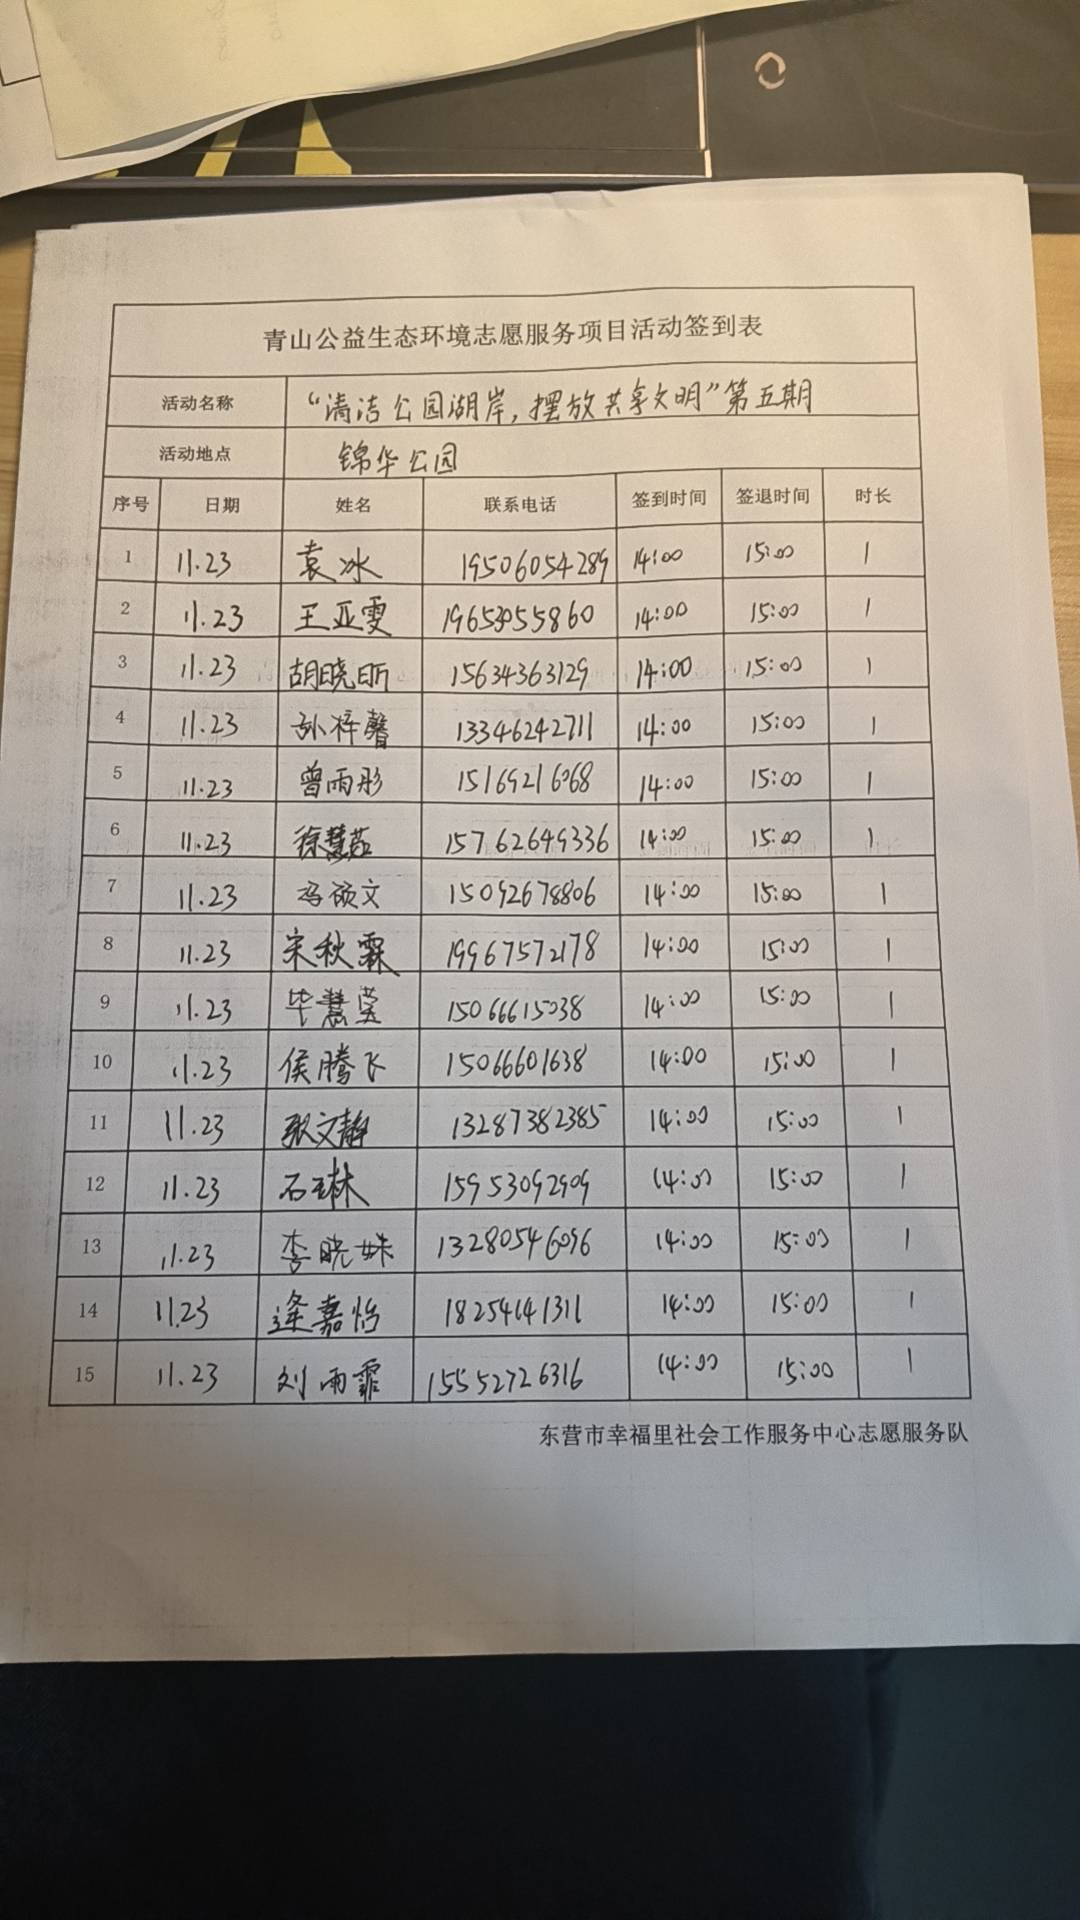 青山公益生态环境志愿服务项目活动签到表
活动名称 “清洁公园湖岸,摆放共享文明”第五期
活动地点 锦华公园
序号 日期 姓名 联系电话 签到时间 签退时间 时长
1 11.23 袁冰 19506054289 14:00 15:00 1
2 11.23 王亚雯 14:00 15:00 1
3 11.23 胡晓昕 15634363129 14:00 15:00 1
4 11.23 孙梓馨 13346242711 14:00 15:00 1
5 11.23 曾雨彤 15169216068 14:00 15:00 1
6 11.23 徐慧茹 15762649336 14:00 15:00 1
7 11.23 冯硕文 15092678806 14:00 15:00 1
8 11.23 宋秋霖 19967572178 14:00 15:00 1
9 11.23 毕慧莹 15066615038 14:00 15:00 1
10 11.23 侯腾飞 15066601638 14:00 15:00 1
11 11.23 张文静 13287382385 14:00 15:00 1
12 11.23 石琳 15953092909 14:00 15:00 1
13 11.23 李晓妹 13280546096 14:00 15:00 1
14 11.23 逄嘉怡 18254141311 14:00 15:00 1
15 11.23 刘雨霏 15552726316 14:00 15:00 1
东营市幸福里社会工作服务中心志愿服务队